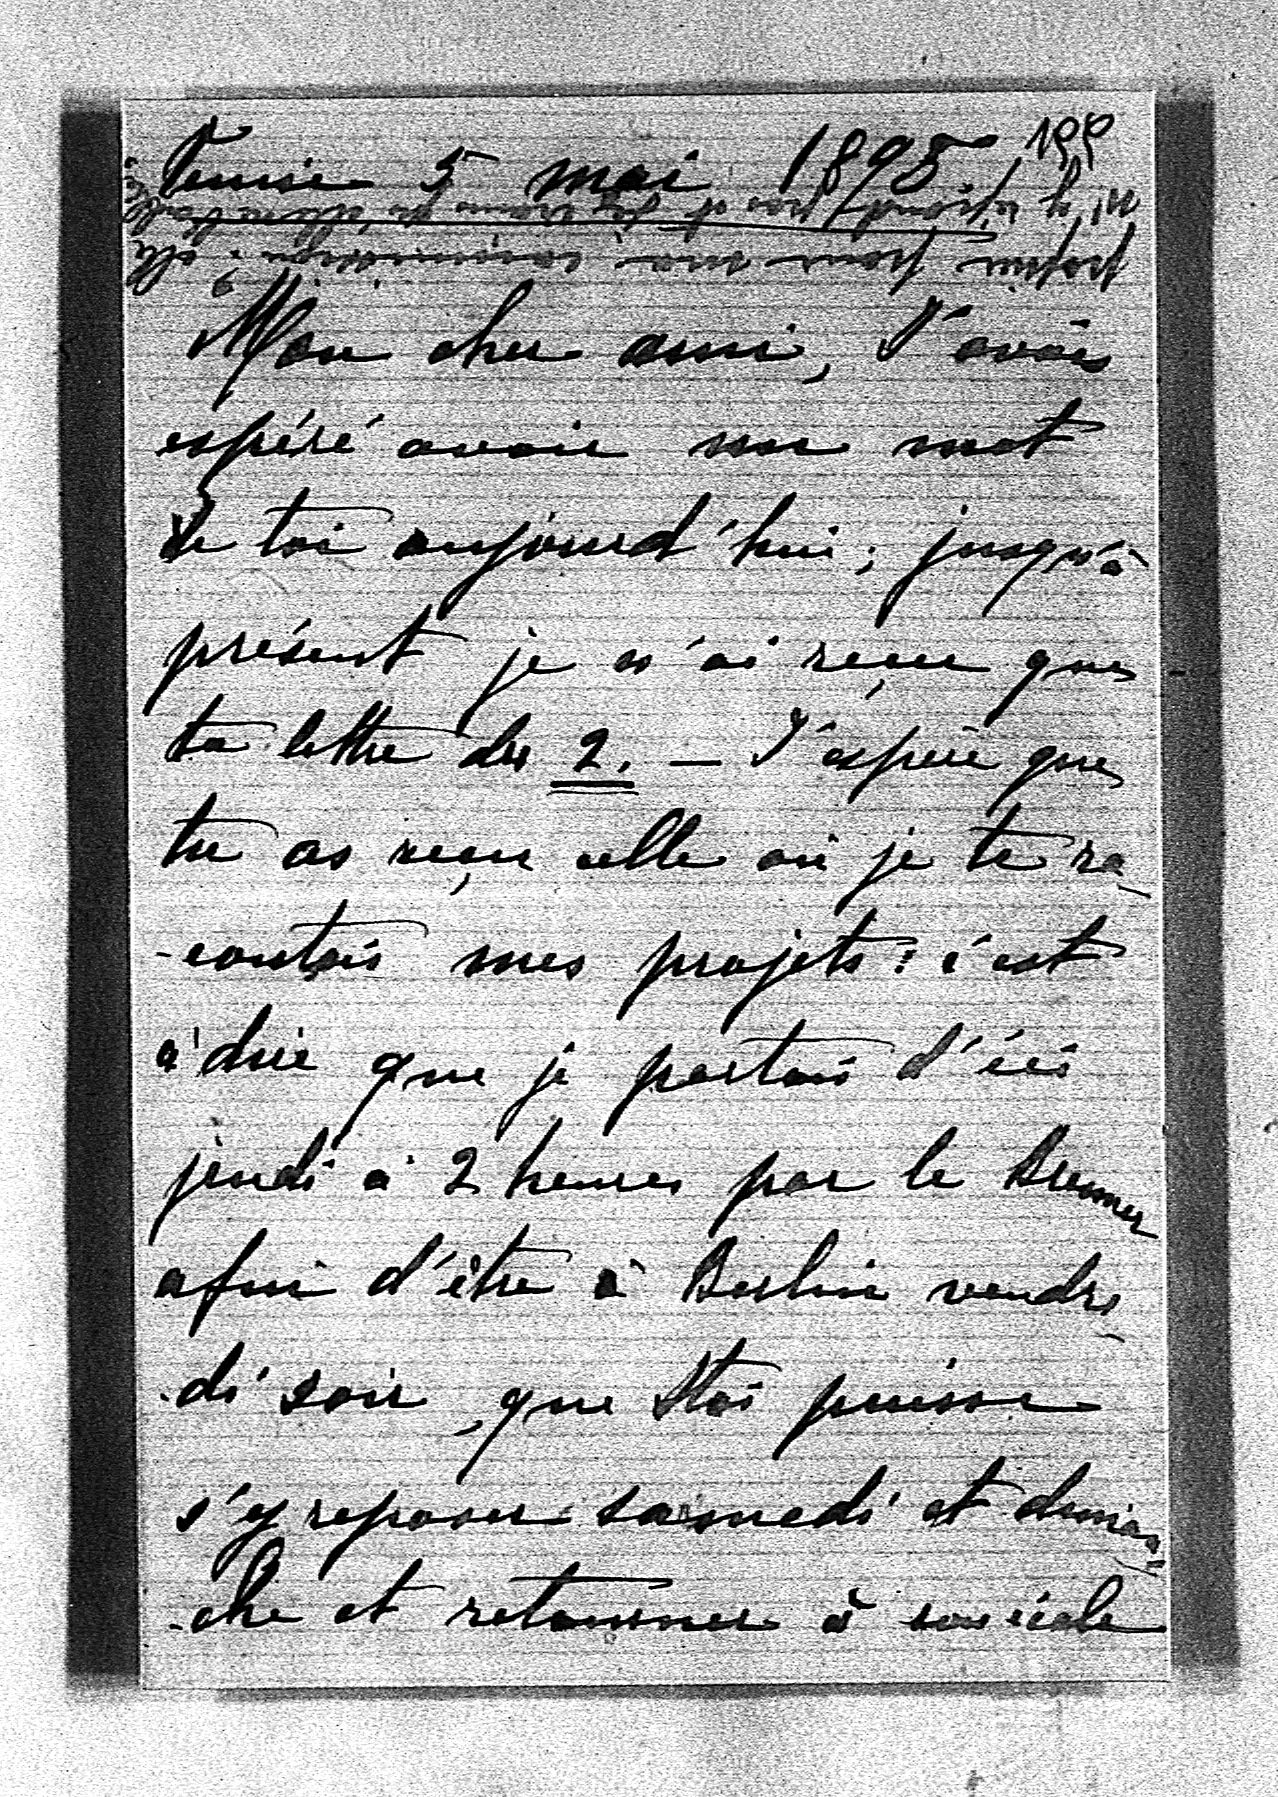 Venise 5 mai 1895
Mon cher ami, J'avais
espéré avoir un mot
de toi aujourd'hui; jusqu'à
présent je n'ai reçu que
ta lettre du 2. — J'espère que
tu as reçu celle où je te ra
-contais mes projets: c'est
à dire que je partais d'ici
jeudi à 2 heures par le Brenner
afin d'être à Berlin vendre
-di soir, que Stoi puisse
s'y reposer samedi et diman=
-che et retourner à son école